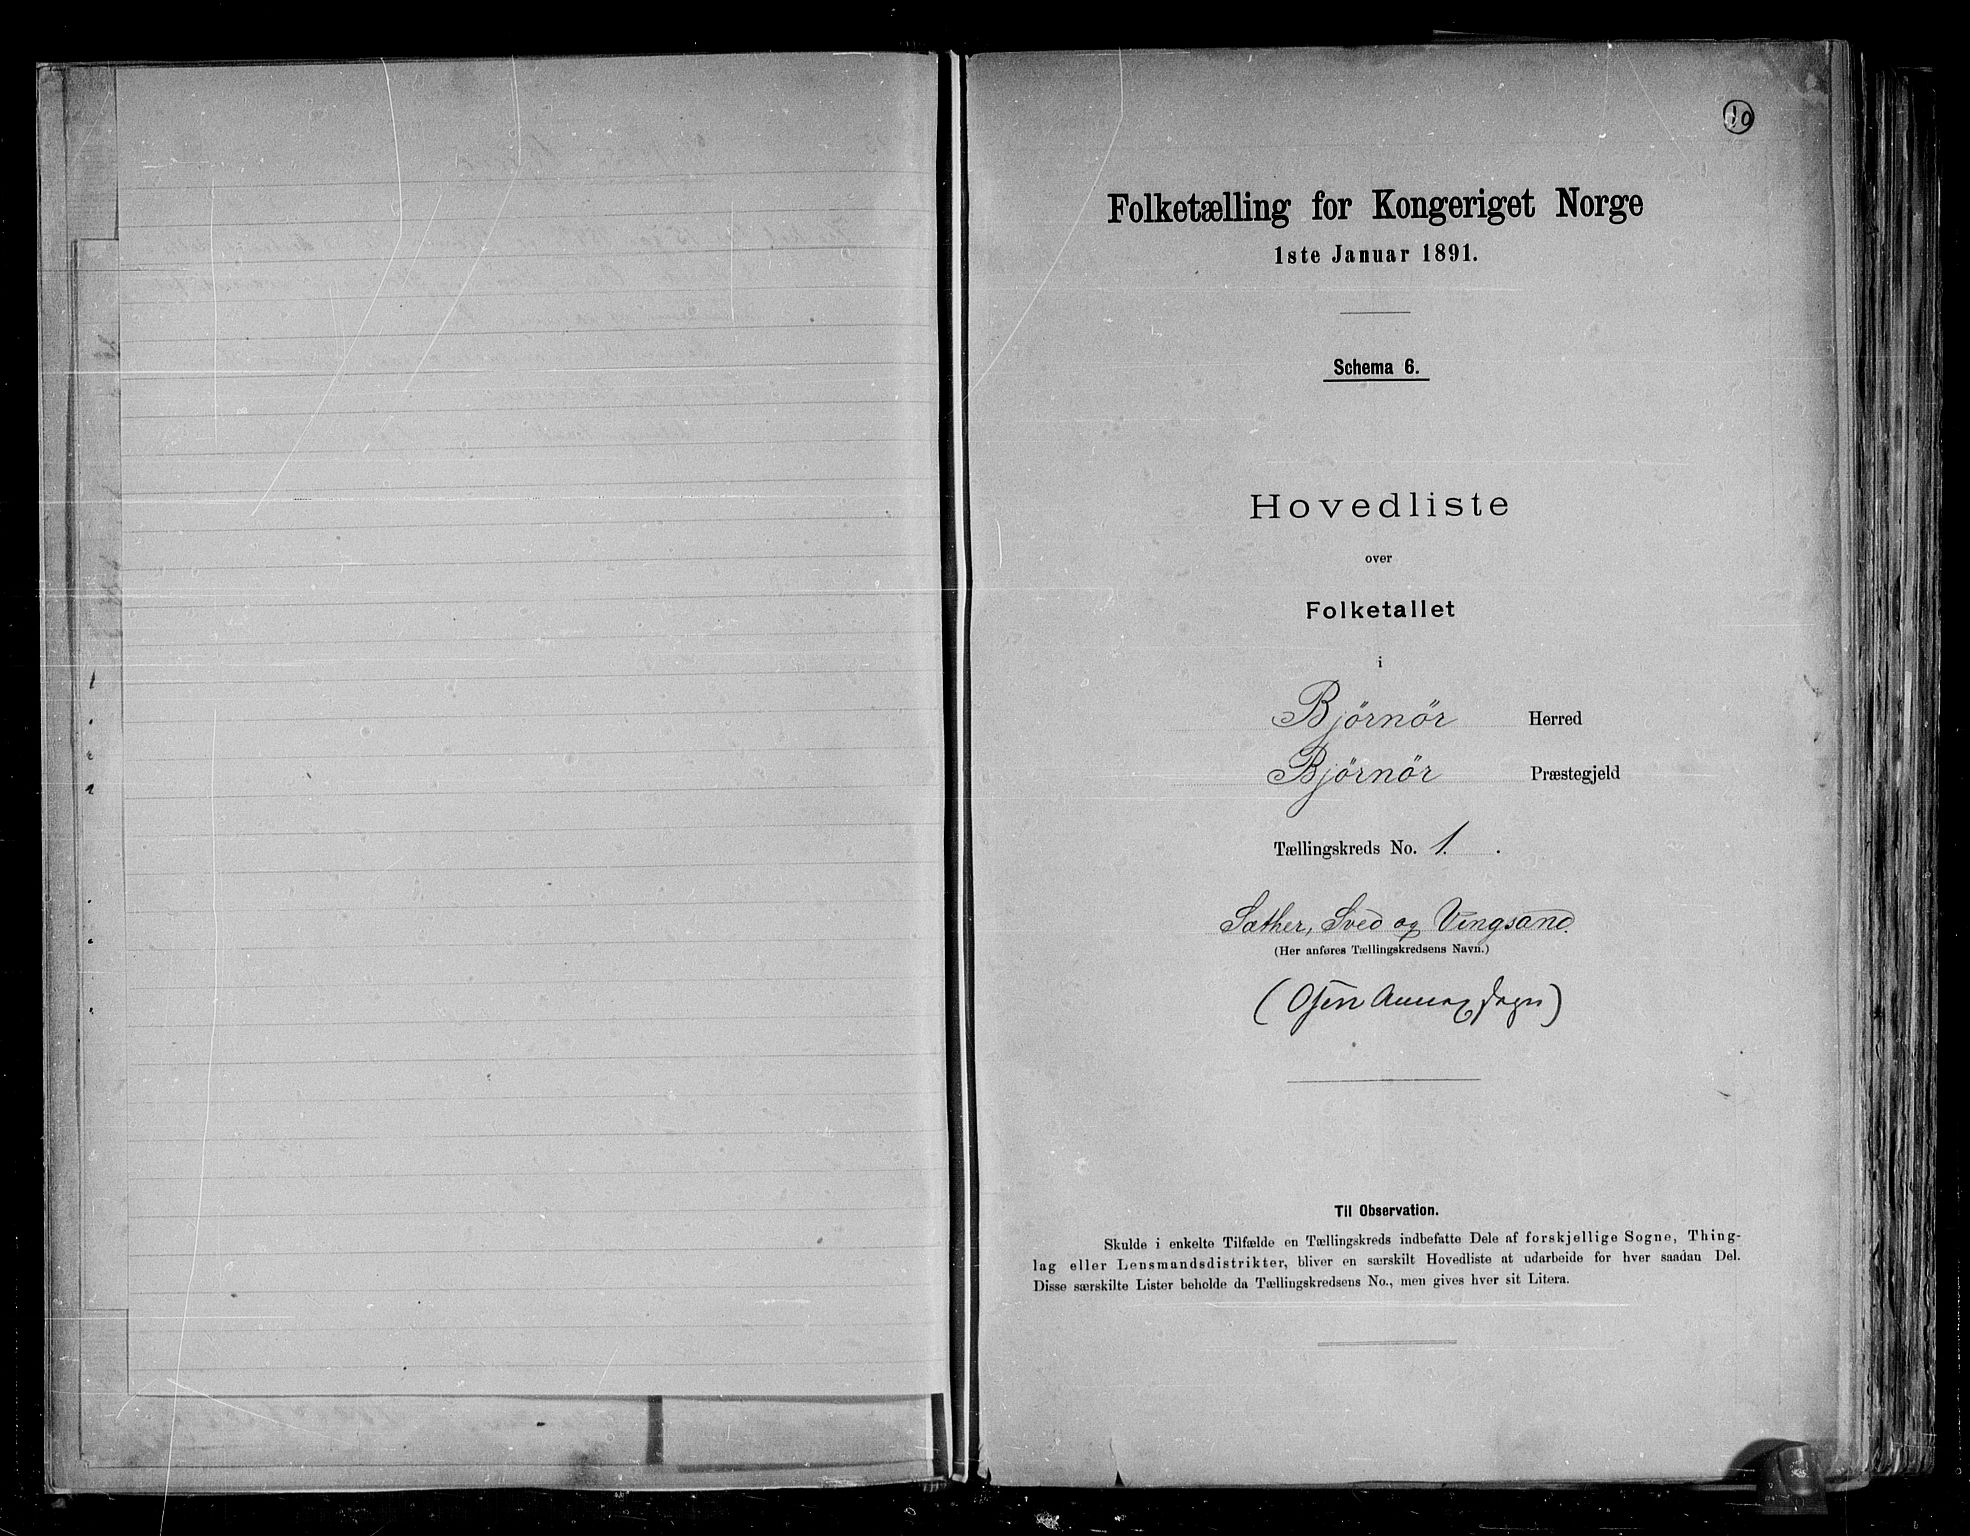 10
Folketælling for Kongeriget Norge
1ste Januar 1891.
Schema 6.
Hovedliste
over
Folketallet
i
Bjørnør Herred
Bjørnør Præstegjeld
Tællingskreds No. 1.
Sæther, Sved og Vingsand.
(Her anføres Tællingskredsens Navn.)
(Osen Annex Sogn)
Til Observation.
Skulde i enkelte Tilfælde en Tællingskreds indbefatte Dele af forskjellige Sogne, Thing-
lag eller Lensmandsdistrikter, bliver en særskilt Hovedliste at udarbeide for hver saadan Del.
Disse særskilte Lister beholde da Tællingskredsens No., men gives hver sit Litera.